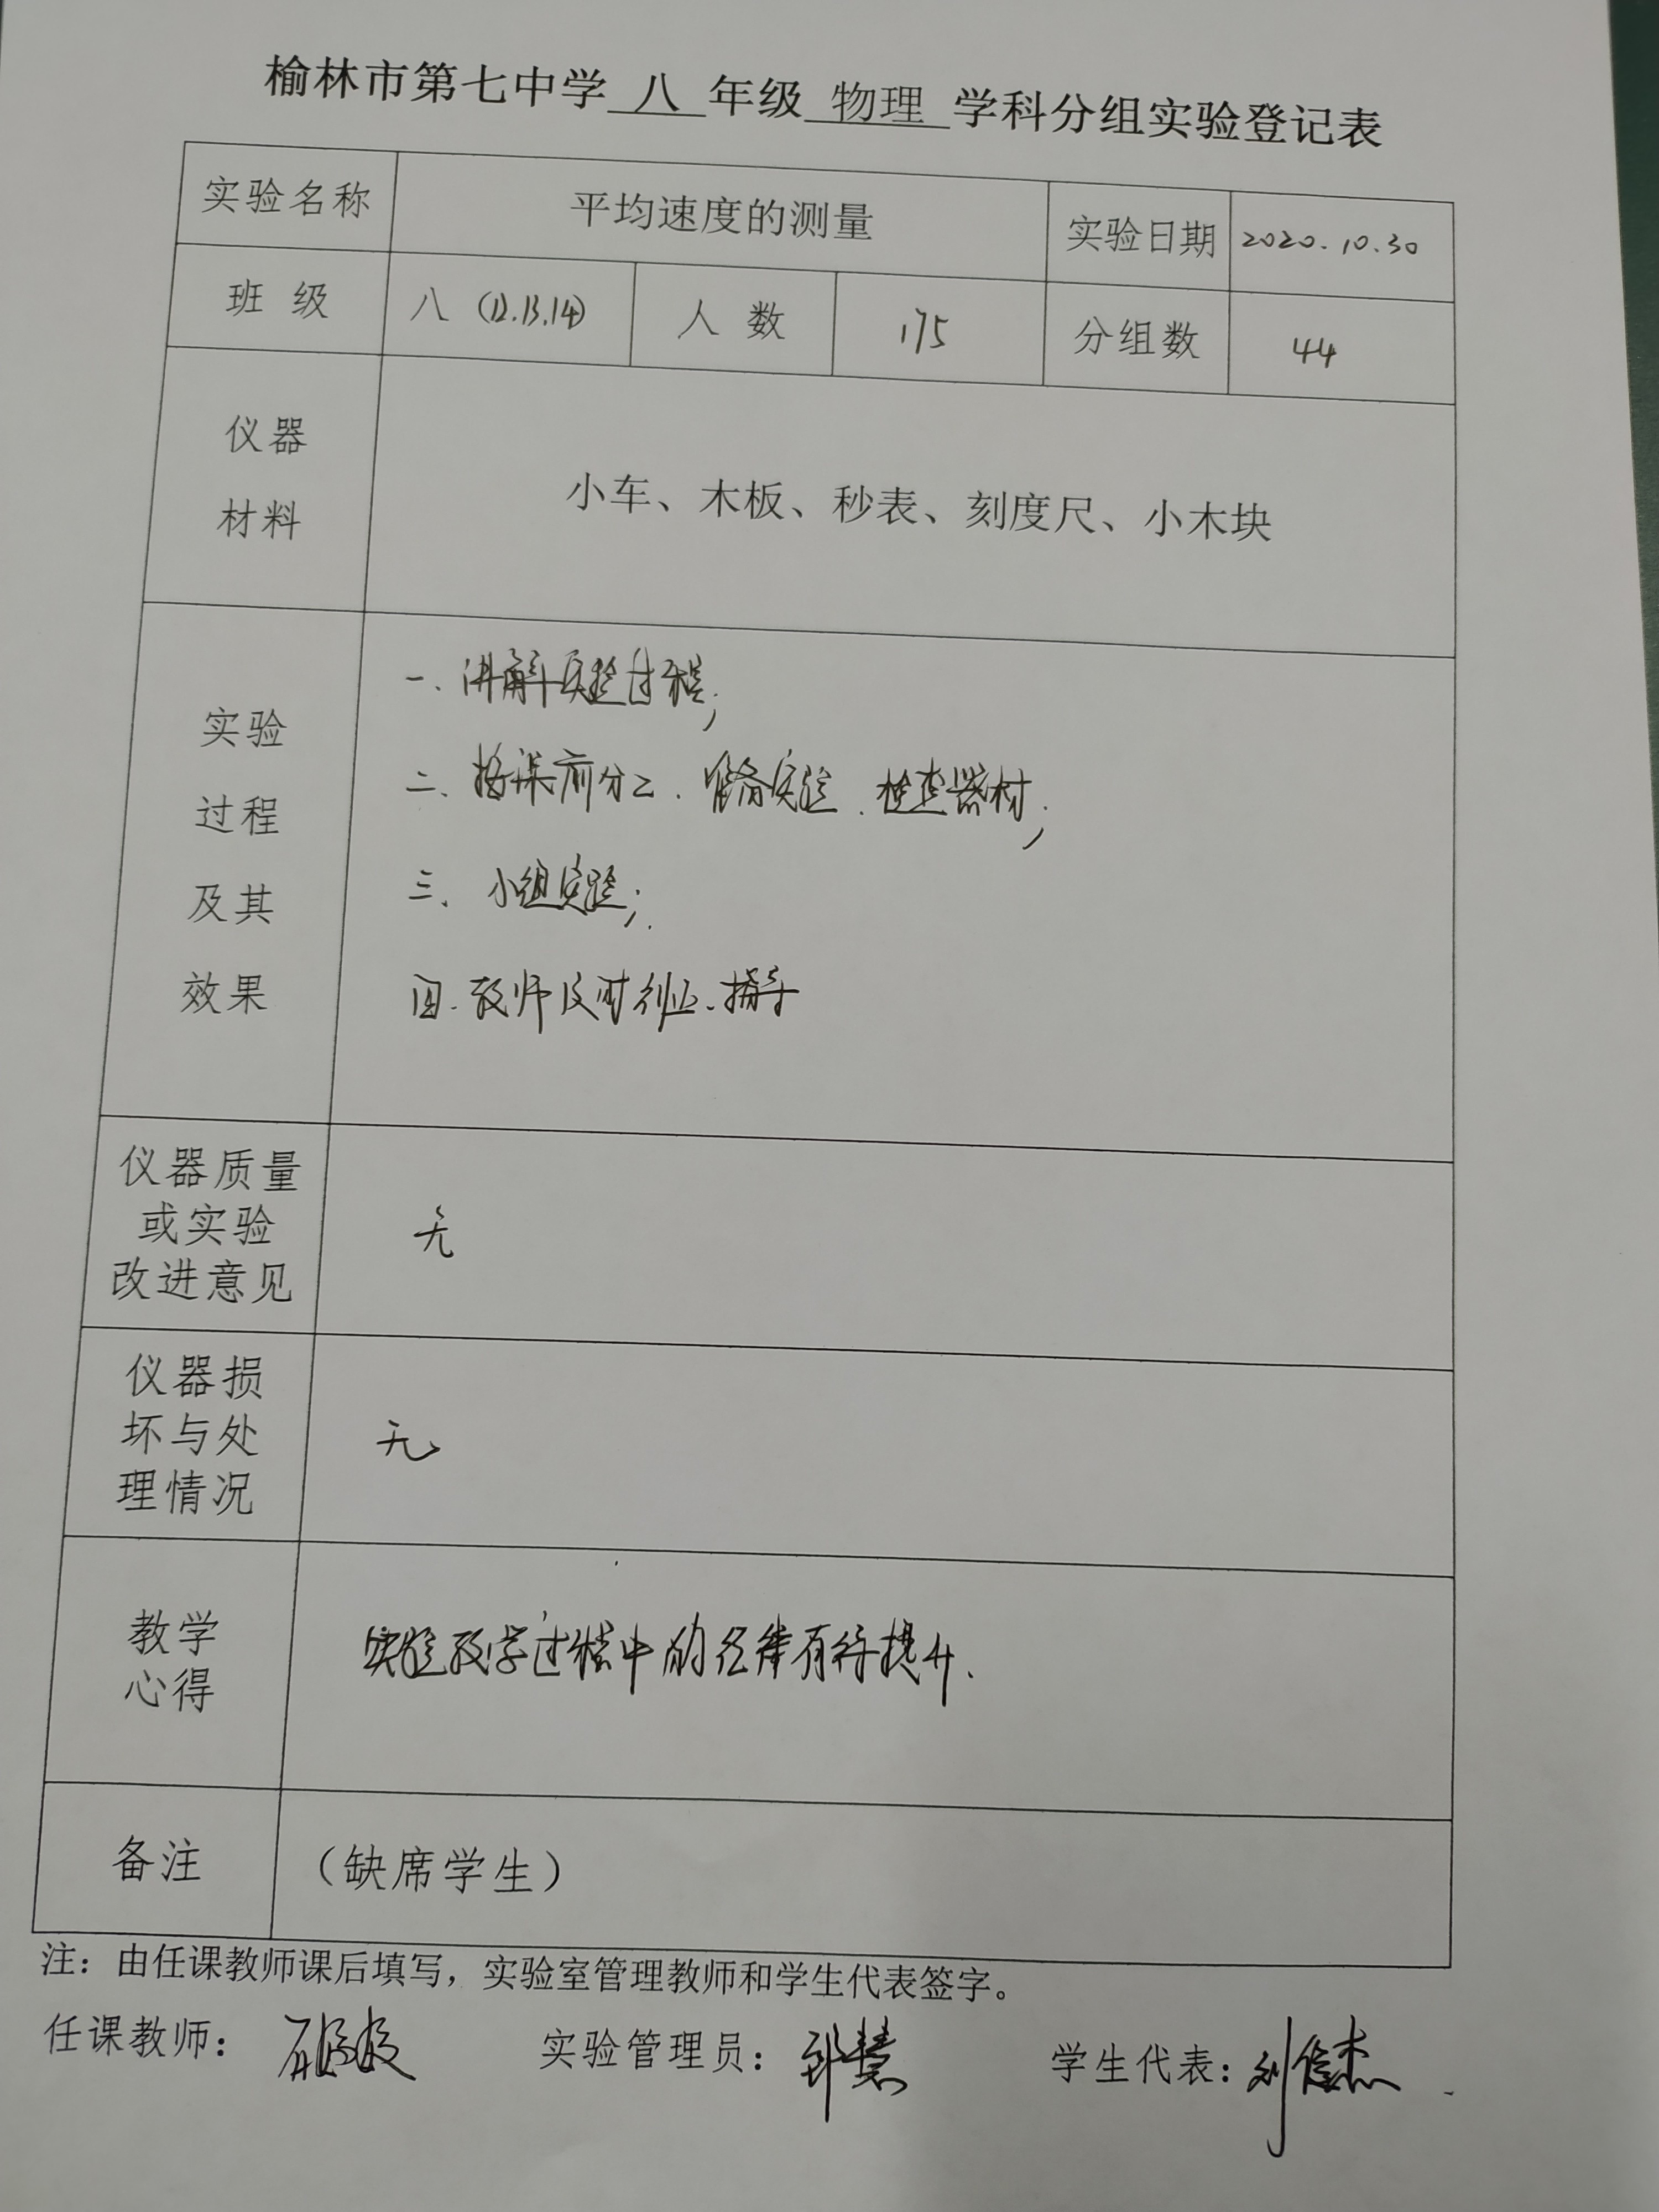 榆林市第七中学 八 年级 物理 学科分组实验登记表
实验名称 平均速度的测量 实验日期 2020.10.30
班 级 八 (12.13.14) 人 数 175 分组数 44
仪器
材料
小车、木板、秒表、刻度尺、小木块
实验
过程
及其
效果
一、讲解实验过程;
二、按课前分工.准备实验.检查器材;
三、小组实验;
四.教师及时纠正、指导
仪器质量
或实验
改进意见
无
仪器损
坏与处
理情况
无
教学
心得
实验教学过程中的纪律有待提升.
备注 （缺席学生）
注：由任课教师课后填写，实验室管理教师和学生代表签字。
任课教师： 实验管理员： 慧 学生代表：刘 杰